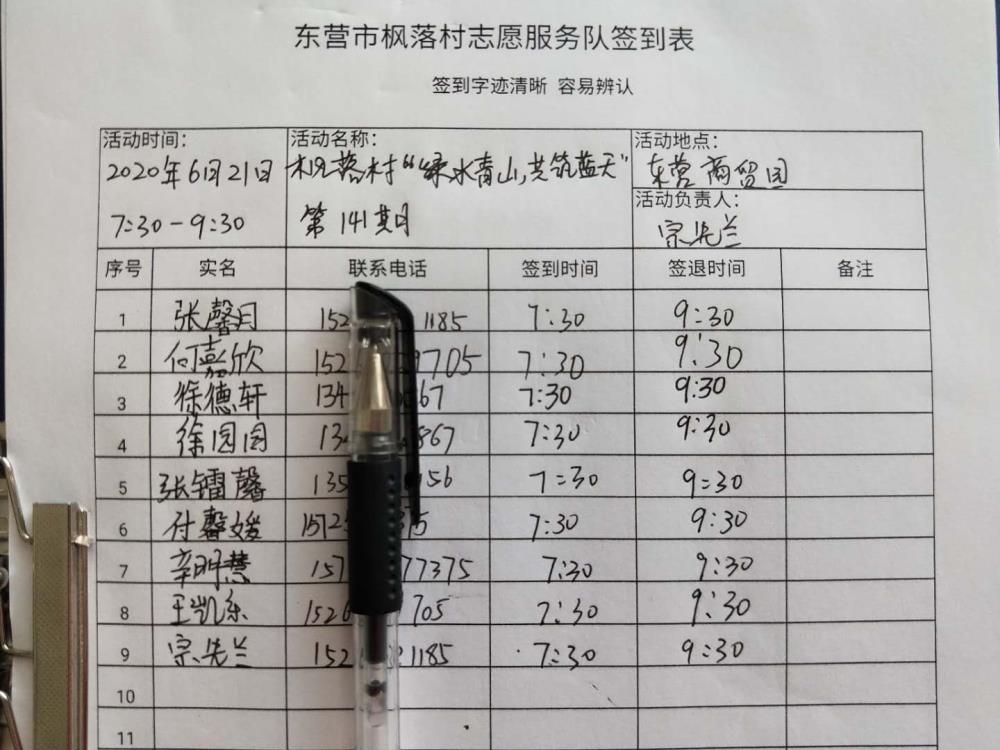 东营市枫落村志愿服务队签到表
签到字迹清晰 容易辨认
活动时间: 活动名称: 活动地点:
2020年6月21日 枫落村“绿水青山,共筑蓝天” 东营商贸园
活动负责人:
7:30-9:30 第141期 宗先兰
序号 实名 联系电话 签到时间 签退时间 备注
1 张馨月 152 1185 7:30 9:30
2 何嘉欣 152 9705 7:30 9:30
3 徐德轩 134 67 7:30 9:30
4 徐园园 13 867 7:30 9:30
5 张镭馨 135 156 7:30 9:30
6 付馨媛 1572 375 7:30 9:30
7 辛明慧 157 77375 7:30 9:30
8 王凯乐 1526 705 7:30 9:30
9 宗先兰 152 1185 7:30 9:30
10
11